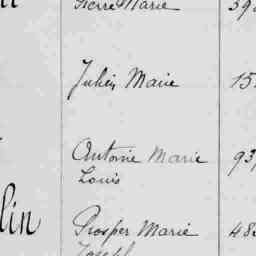 Pierre Marie 392
Julien Marie 15
Antoine Marie 93
Louis
lin Prosper Marie 48
Joseph